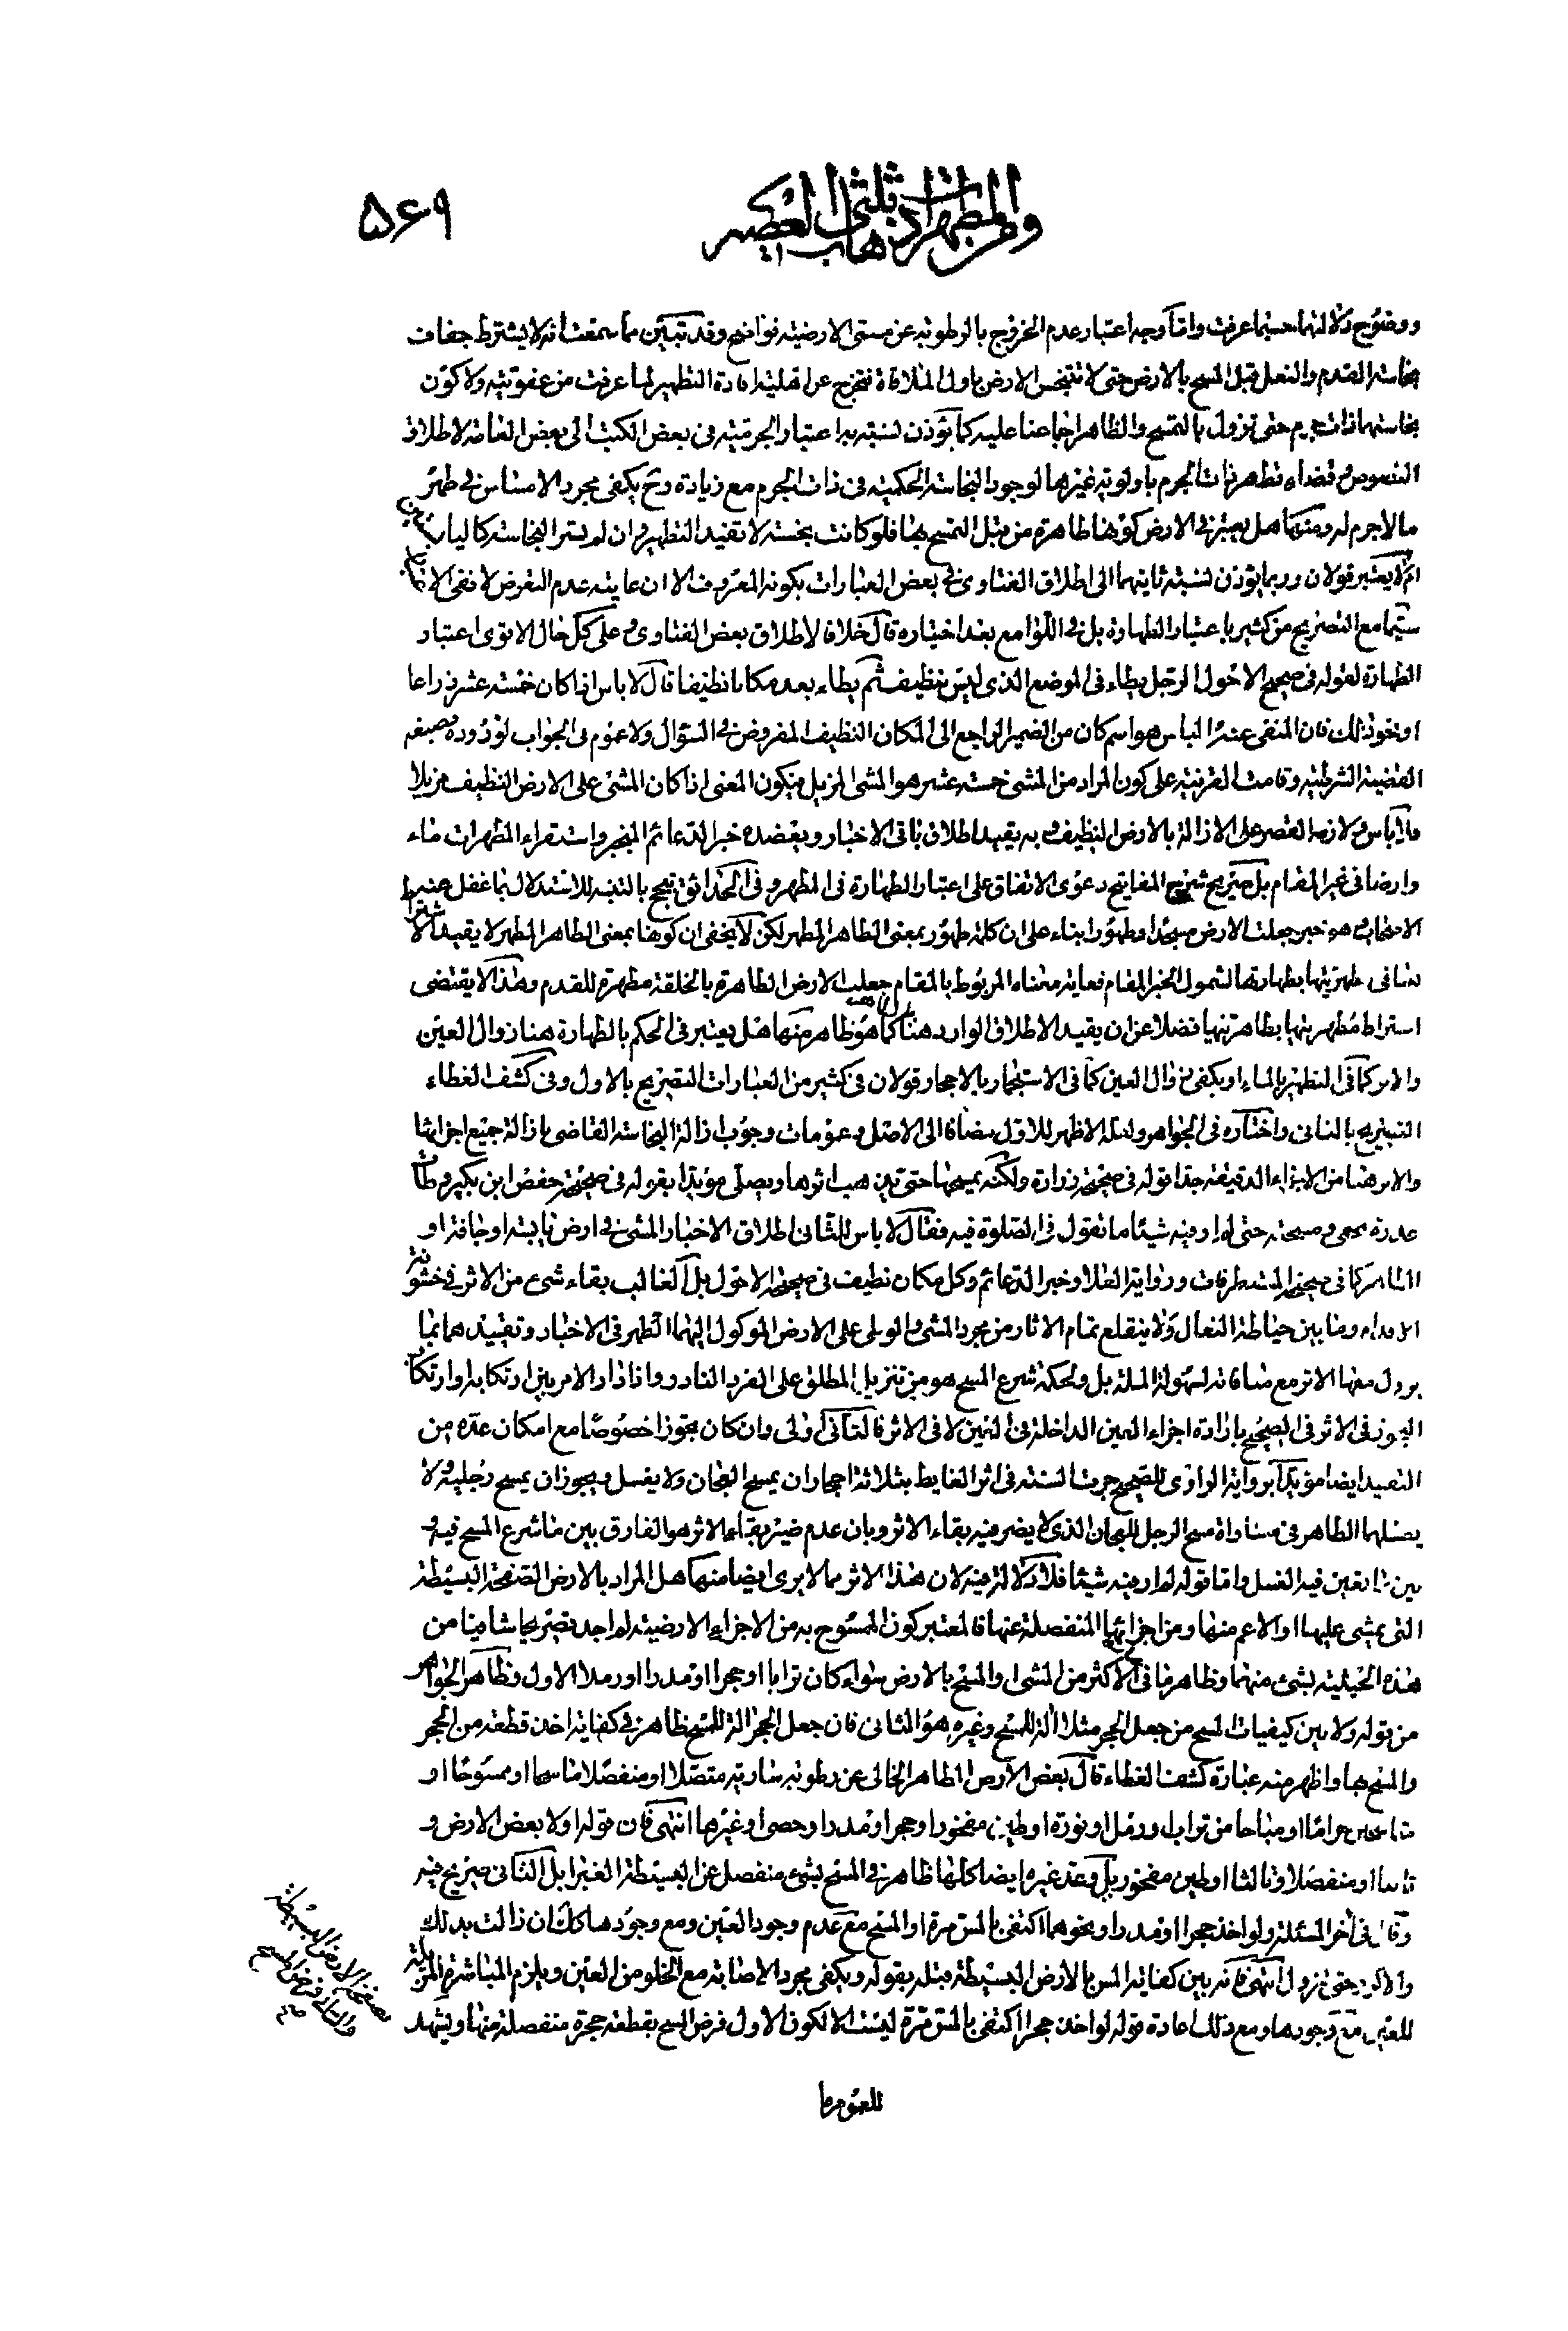 ومن المطهرات ذهاب ثلثى العصير
۵۶۹
ووضوح دلالتهما حسبما عرفت واما وجه اعتبار عدم الخروج بالرطوبة عن مسمى الارضية فواضح وقد تبين مما سمعت انه لا يشترط جفاف
نجاسة القدم والنعل قبل المسح بالارض حتى لا تتنجس الارض باول الملاقاة فتخرج عن اهلية افادة التطهير لما عرفت من عفويته ولا كون
نجاستهما ذات جرم حتى تزول بالتمسح والظاهر اجماعنا عليه كما يؤذن نسبته اعتبار الجرمية فى بعض الكتب الى بعض العامة لاطلاق
النصوص وقضاء تطهر ذات الجرم باولوية غيرها لوجود النجاسة الحكمية فى ذات الجرم مع زيادة وح يكفى مجرد الامساس فى طهر
ما لا جرم له ومنها هل يعتبر فى الارض كونها طاهرة من قبل التمسح بها فلو كانت نجسة لا تفيد التطهير وان لم يستر النجاسة كاليابس
ام لا يعتبر قولان وربما يؤذن نسبة ثانيهما الى اطلاق الفتاوى فى بعض العبارات بكونه المعروف الا ان غايته عدم التعرض لا نفى الا
سيما مع التصريح من كثير باعتبار الطهارة بل فى اللوامع بعد اختياره قال خلافا لاطلاق بعض الفتاوى وعلى كل حال الاقوى اعتبار
الطهارة لقوله فى صحيح الاحول الرجل يطاء فى الموضع الذى ليس بنظيف ثم يطاء بعده مكانا نظيفا قال لا باس اذا كان خمسة عشر ذراعا
او نحو ذلك فان المنفى عنه الباس هو اسم كان من الضمير الراجع الى المكان النظيف المفروض فى السؤال ولا عموم فى الجواب لوروده بصيغة
القضية الشرطية وقامت القرينة على كون المراد من المشى خمسة عشر هو المشى المزيل فيكون المعنى اذا كان المشى على الارض النظيف مزيلا
فلا باس ولازمه القصر على الازالة بالارض النظيف وبه يقيد اطلاق باقى الاخبار ويعضده خبر الدعائم المنجبر واستقراء المطهرات ماء
وارضا فى غير المقام بل صريح شرح المفاتيح دعوى الاتفاق على اعتبار الطهارة فى المطهر وفى الحدائق تبجح بالتنبه للاستدلال بما غفل عنه
الاصحاب وهو خبر جعلت الارض مسجدا وطهورا بناء على ان كلمة طهور بمعنى الطاهر المطهر لكن لا يخفى ان كونها بمعنى الطاهر المطهر لا يقيد الاشتراط
لنا فى مطهريتها بطهارتها لشمول الخبر المقام فغاية معناه المربوط بالمقام جعلت الارض الطاهرة بالخلقة مطهرة للقدم وهذا لا يقتضى
اشتراط مطهريتها بطاهريتها فضلا عن ان يقيد الاطلاق الوارد هنا كما هو ظاهر منها هل يعتبر فى الحكم بالطهارة هنا زوال العين
والاثر كما فى التطهير بالماء او يكفى زوال العين كما فى الاستجمار بالاحجار قولان فى كثير من العبارات التصريح بالاول وفى كشف الغطاء
التصريح بالثانى واختاره فى الجواهر ولعله الاظهر للاول مضافا الى الاصل وعمومات وجوب ازالة النجاسة القاضى بازالة جميع اجزائها
والاثر هنا من الاجزاء الدقيقة جدا قوله فى صحيحة زرارة ولكنه يمسحها حتى يذهب اثرها ويصلى مؤيدا بقوله فى صحيحة حفص ابن
عذرة بخفى ومسحته حتى لم ار فيه شيئا ما تقول فى الصلوة فيه فقال لا باس للثانى اطلاق الاخبار المشى فى ارض يابسة او جافة او
الطاهر كما فى صحيحة المستطرفات ورواية الحلبى وخبر الدعائم وكل مكان نظيف فى صحيحة الاحول بل الغالب بقاء شىء من الاثر فى خشونة
الاقدام وما بين خياطة النعال ولا ينقلع تمام الاثار من مجرد المشى والوطى على الارض الموكول اليهما التطهر فى الاخبار وتقييدهما بما
يزول معها الاثر مع منافاته لسهولة الملة بل ولحكمة شرع المسح هو من تنزيل المطلق على الفرد النادر واذا دار الامر بين ارتكابه وارتكاب
التجوز فى الاثر فى الصحيح بارادة اجزاء العين الداخلة فى العين لا فى الاثر فالثانى اولى وان كان تجوزا خصوصا مع امكان عده من
التقييد ايضا مؤيدا برواية الراوى للصحيح جرت السنة فى اثر الغايط بثلاثة احجار ان يمسح العجان ولا يغسل ويجوز ان يمسح رجليه ولا
يغسلهما الظاهر فى مساواة مسح الرجل للعجان الذى لا يضر فيه بقاء الاثر وبان عدم ضير بقاء الاثر هو الفارق بين ما شرع المسح فيه و
بين ما تعين فيه الغسل واما قوله لم ار فيه شيئا فلا دلالة فيه لان هذا الاثر مما لا يرى ايضا منها هل المراد بالارض الصفحة البسيطة
التى يمشى عليها او الاعم منها ومن اجزائها المنفصلة عنها فالمعتبر كون الممسوح به من الاجزاء الارضية لم اجد تصريحا شافيا من
هذه الحيثية بشىء منهما وظاهر ما فى الاكثر من المشى او المسح بالارض سواء كان ترابا او حجرا او مدرا او رملا الاول وظاهر الجواهر
من قوله ولا بين كيفيات المسح من جعل الحجر مثلا الة للمسح وغيره هو الثانى فان جعل الحجر الة للمسح ظاهر فى كفاية اخذ قطعة من الحجر
والمسح بها واظهر منه عبارة كشف الغطاء قال بعض الارض الطاهر الخالى عن رطوبة سارية متصلا او منفصلا ماسحا او ممسوحا او
حراما او مباحا من تراب او رمل او نورة او طين مفخور او حجر او مدر او حصى او غيرها انتهى فان قوله اولا بعض الارض و
ثانيا او منفصلا وثالثا او طين مفخور بل وعد غيره ايضا كلها ظاهر فى المسح بشىء منفصل عن البسيطة الغبراء بل الثانى صريح فيه
وقال فى اخر المسئلة ولو اخذ حجرا او مدرا او نحوهما اكتفى بالمس مرة او المسح مع عدم وجود العين ومع وجودها كان زالت بذلك
والا كرر حتى تزول انتهى فانه بين كفاية المس بالارض البسيطة قبله بقوله ويكفى مجرد الاصابة مع الخلو من العين ويلزم المباشرة المزيلة
للعين مع وجودها ومع ذلك اعادة قوله لو اخذ حجرا اكتفى بالمس مرة ليست الا لكون الاول فرض المسح بقطعة حجرة منفصلة منها ويشهد
بصفحة الارض البسيطة
والثانى فرض المسح
للعموم ما